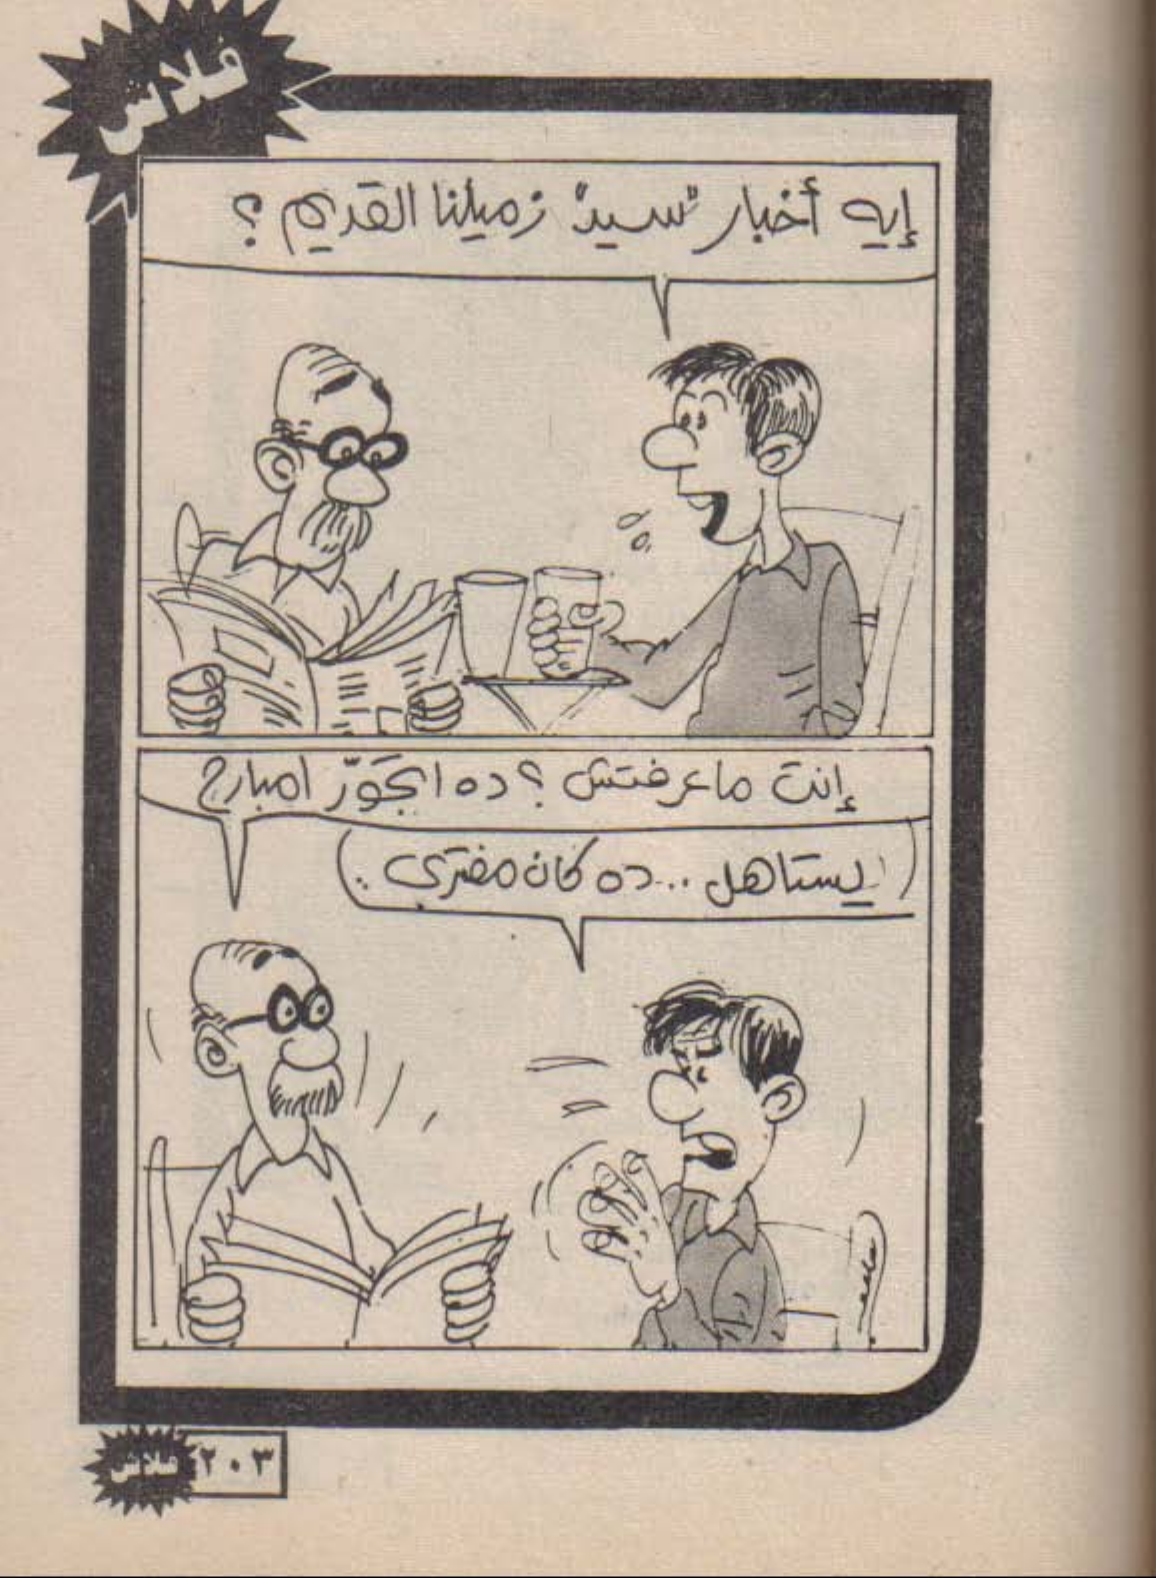 فلاش
إيه أخبار "سيد" زميلنا القديم ؟
إنت ماعرفتش ؟ ده اتجوّز امبارح
يستاهل ... ده كان مفتري ..
فلاش ٢٠٣